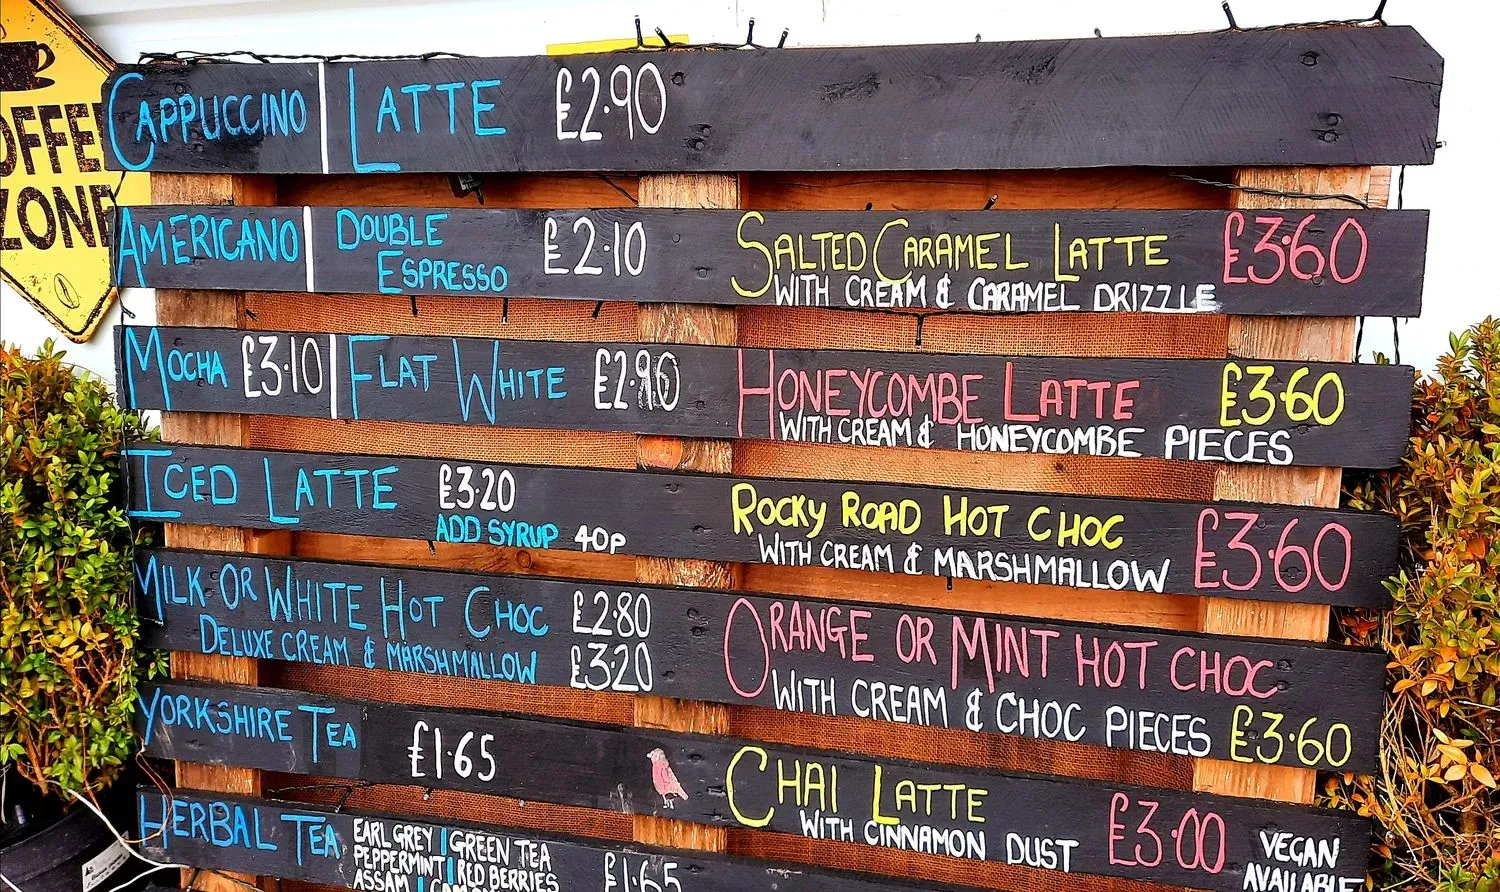 COFFEE
ZONE
CAPPUCCINO | LATTE £2.90
AMERICANO | DOUBLE ESPRESSO £2.10
MOCHA £3.10 | FLAT WHITE £2.90
ICED LATTE £3.20
ADD SYRUP 40p
MILK OR WHITE HOT CHOC £2.80
DELUXE CREAM & MARSHMALLOW £3.20
YORKSHIRE TEA £1.65
HERBAL TEA EARL GREY | GREEN TEA £1.65
PEPPERMINT | RED BERRIES
ASSAM |
SALTED CARAMEL LATTE £3.60
WITH CREAM & CARAMEL DRIZZLE
HONEYCOMBE LATTE £3.60
WITH CREAM & HONEYCOMBE PIECES
ROCKY ROAD HOT CHOC £3.60
WITH CREAM & MARSHMALLOW
ORANGE OR MINT HOT CHOC
WITH CREAM & CHOC PIECES £3.60
CHAI LATTE £3.00
WITH CINNAMON DUST
VEGAN
AVAILABLE